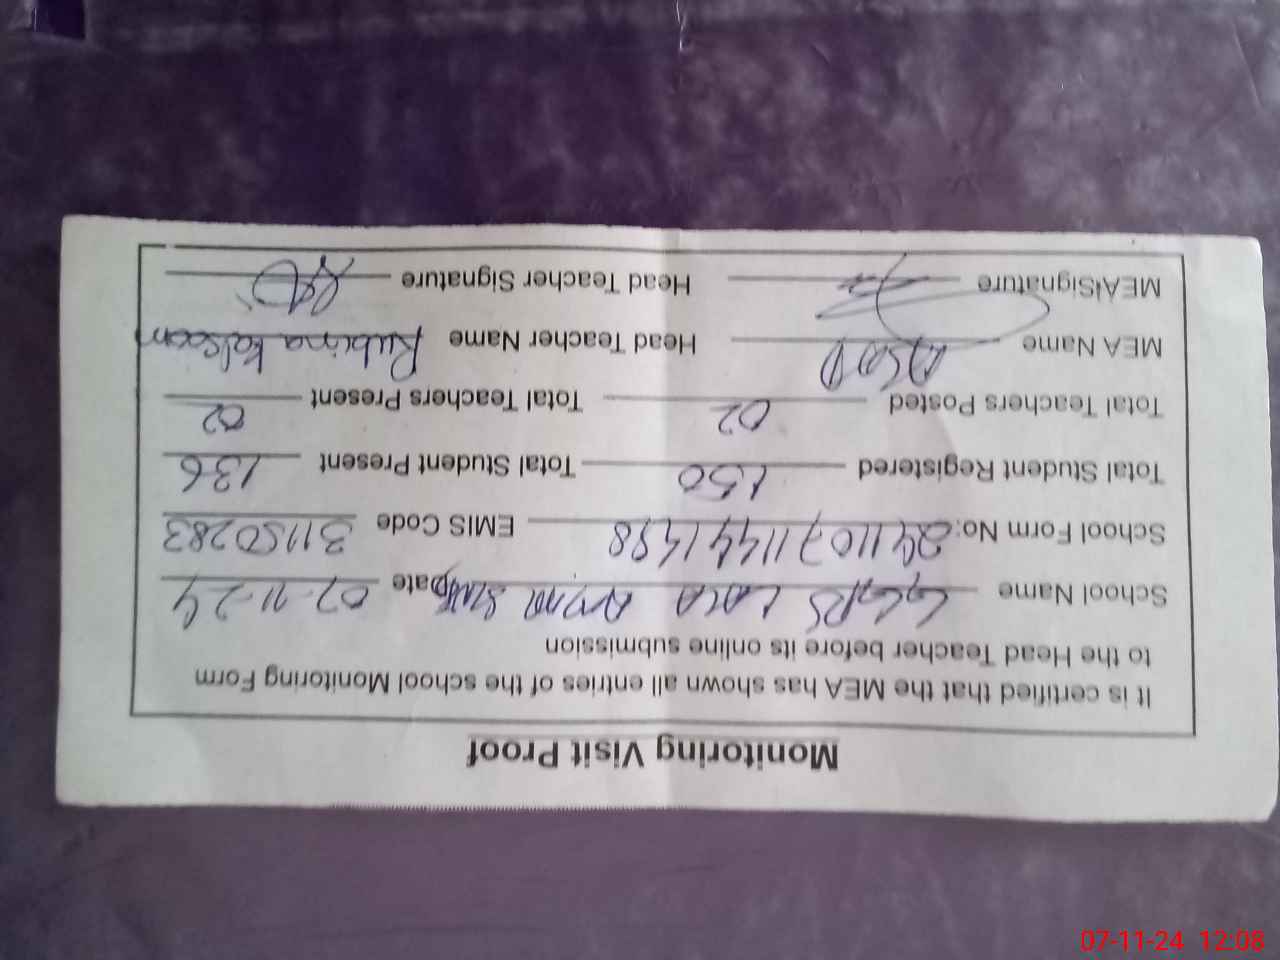 Monitoring Visit Proof
It is certified that the MEA has shown all entries of the school Monitoring Form
to the Head Teacher before its online submission
School Name GGPS LALA Date 07-11-24
School Form No: EMIS Code 31150283
Total Student Registered 150 Total Student Present 136
Total Teachers Posted 02 Total Teachers Present 02
MEA Name ASAD Head Teacher Name Rubina Kalsoom
MEA Signature Head Teacher Signature
07-11-24 12:08